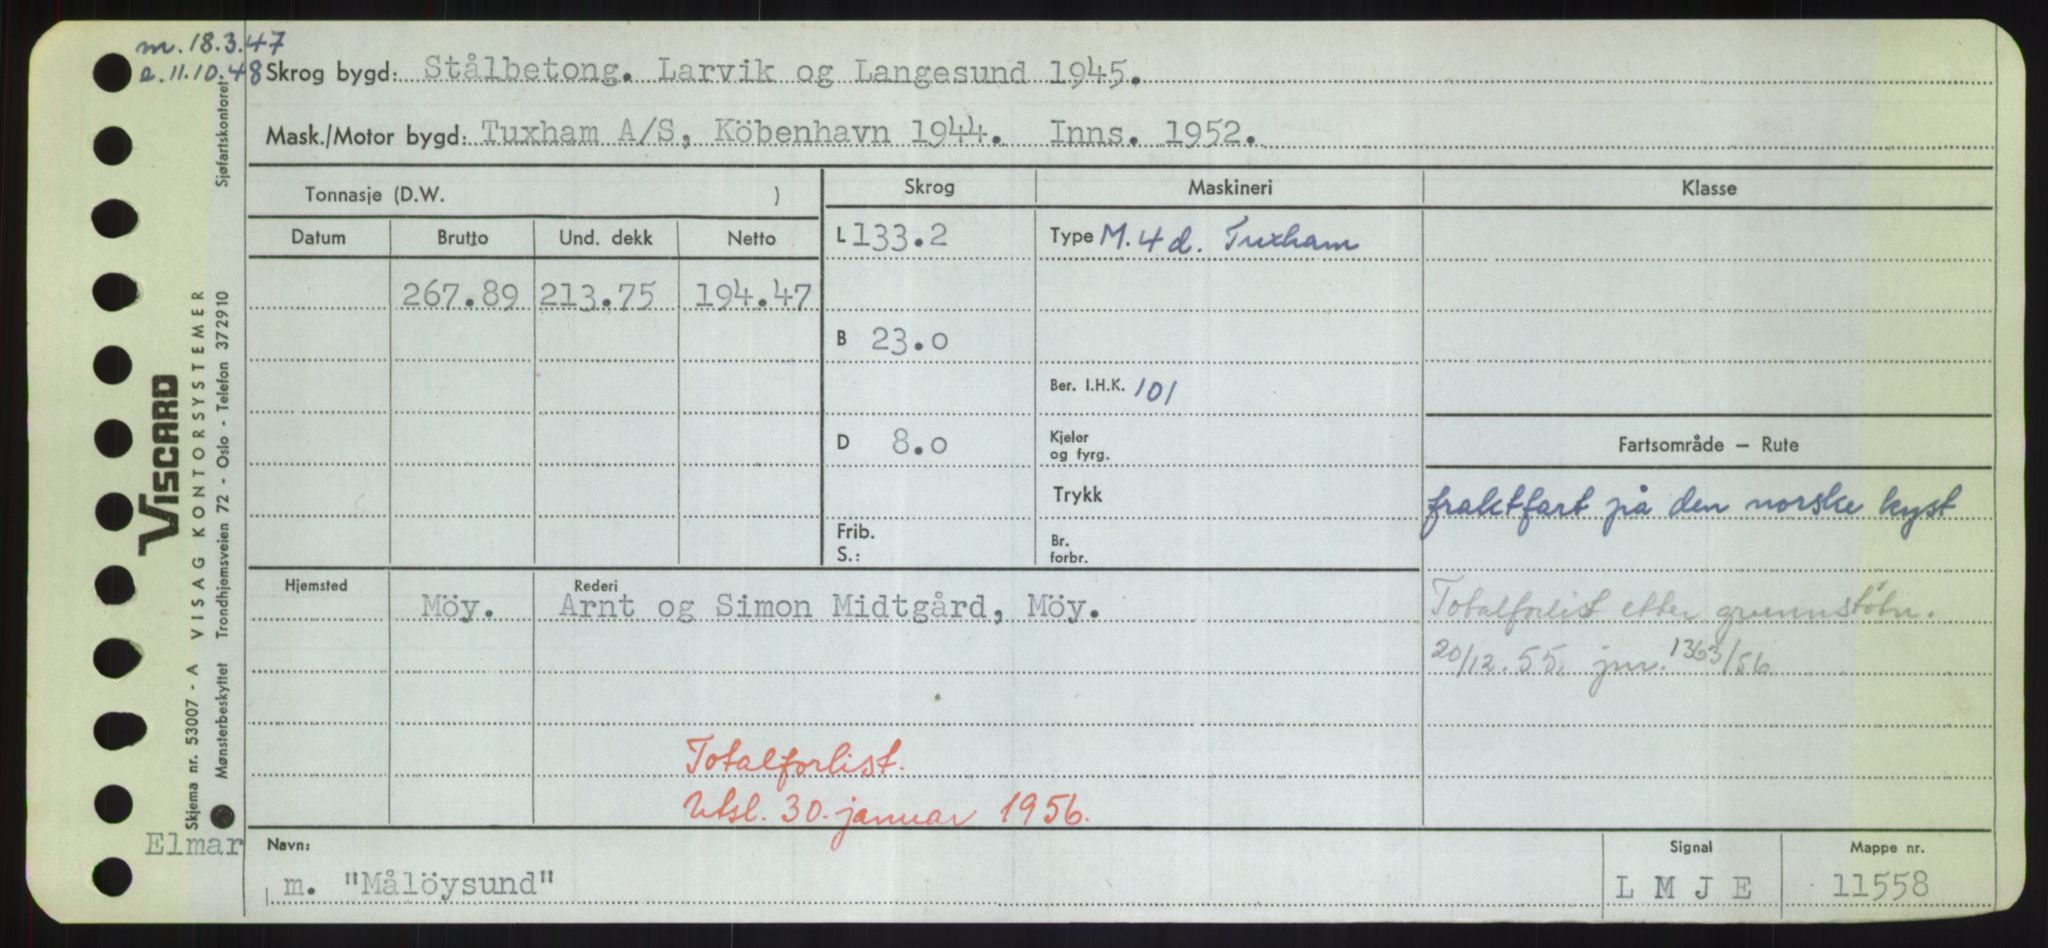 m. 18.3.47
e. 11.10.48
Skrog bygd: Stålbetong. Larvik og Langesund 1945.
Mask./Motor bygd: Tuxham A/S, Köbenhavn 1944. Inns. 1952.
Tonnasje (D.W. )
Skrog
Maskineri
Klasse
Datum Brutto Und. dekk Netto
L 133.2
Type M. 4 d. Tuxham
267.89 213.75 194.47
B 23.0
Ber. I.H.K. 101
D 8.0
Kjeler
og fyrg.
Fartsområde — Rute
Trykk
fraktfart på den norske kyst
Frib.
S.:
Br.
forbr.
Hjemsted
Rederi
Möy. Arnt og Simon Midtgård, Möy.
Totalforlist etter grunnstötn.
20/12.55. jnr. 1363/56
Totalforlist.
Utsl. 30. januar 1956.
Elmar
Navn:
m. "Målöysund"
Signal
L M J E
Mappe nr.
11558
VISCARD
VISAG KONTORSYSTEMER
Skjema nr. 53007 - A
Mønsterbeskyttet Trondhjemsveien 72 - Oslo - Telefon 372910
Sjøfartskontoret